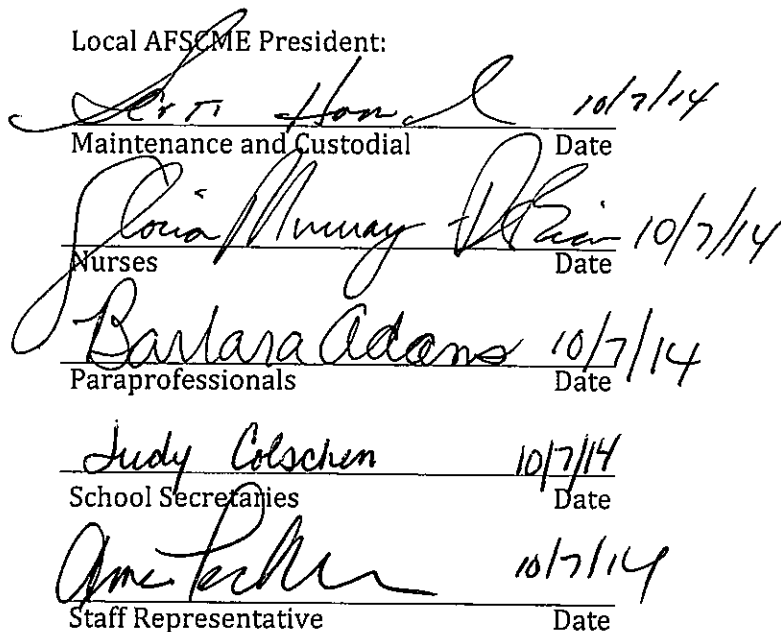 Local AFSCME President:
10/7/14
Maintenance and Custodial Date
Gloria Murray 10/7/14
Nurses Date
Barbara Adams 10/7/14
Paraprofessionals Date
Judy Colschen 10/7/14
School Secretaries Date
10/7/14
Staff Representative Date